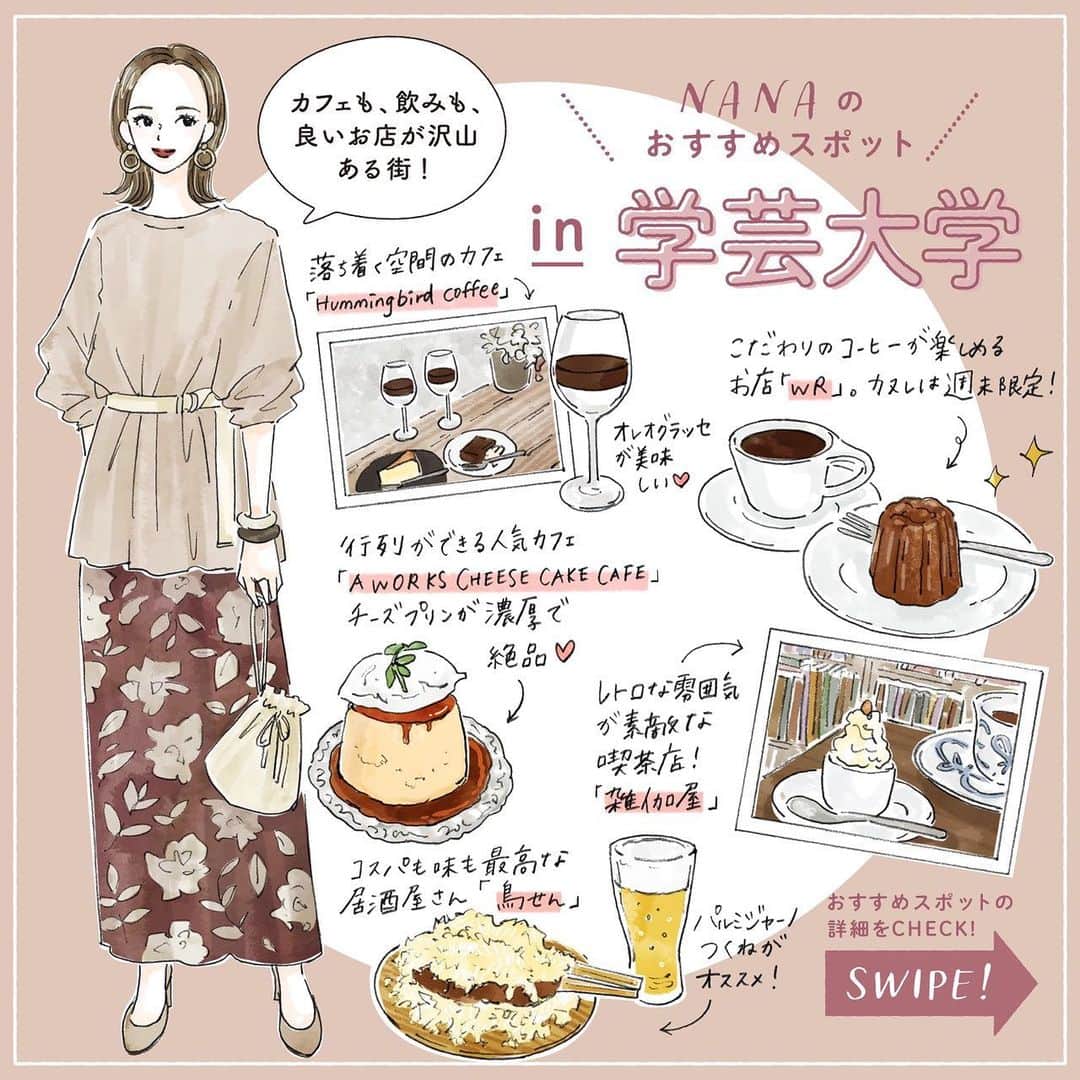 カフェも、飲みも、
良いお店が沢山
ある街！
NANAの
おすすめスポット
in 学芸大学
落ち着く空間のカフェ
「Hummingbird coffee」
オレオグラッセ
が美味
しい
こだわりのコーヒーが楽しめる
お店「WR」。カヌレは週末限定！
行列ができる人気カフェ
「A WORKS CHEESE CAKE CAFE」
チーズプリンが濃厚で
絶品
レトロな雰囲気
が素敵な
喫茶店！
「雑伽屋」
コスパも味も最高な
居酒屋さん「鳥せん」
パルミジャーノ
つくねが
オススメ！
おすすめスポットの
詳細をCHECK!
SWIPE!